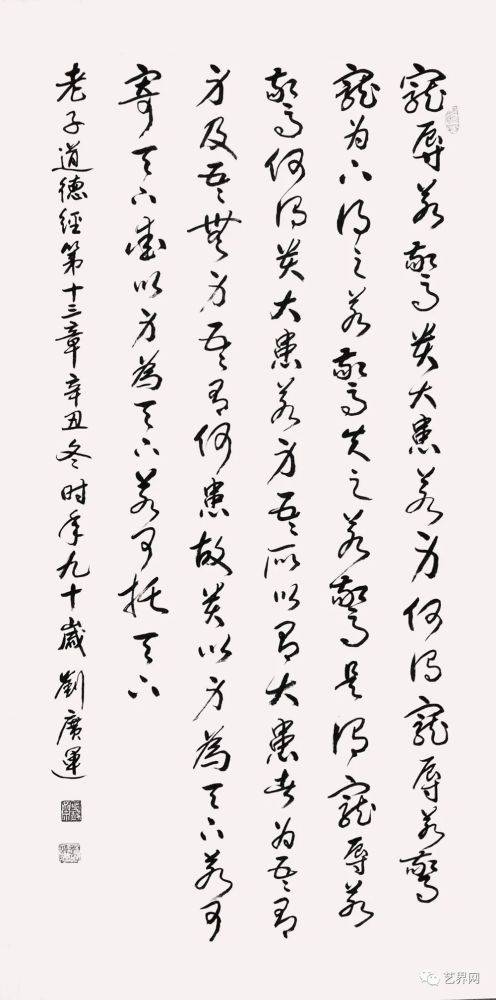 寵辱若驚貴大患若身何謂寵辱若驚
寵為下得之若驚失之若驚是謂寵辱若
驚何謂貴大患若身吾所以有大患者為吾有
身及吾無身吾有何患故貴以身為天下若可
寄天下愛以身為天下若可托天下
老子道德經第十三章辛丑冬时年九十歲劉廣運
艺界网